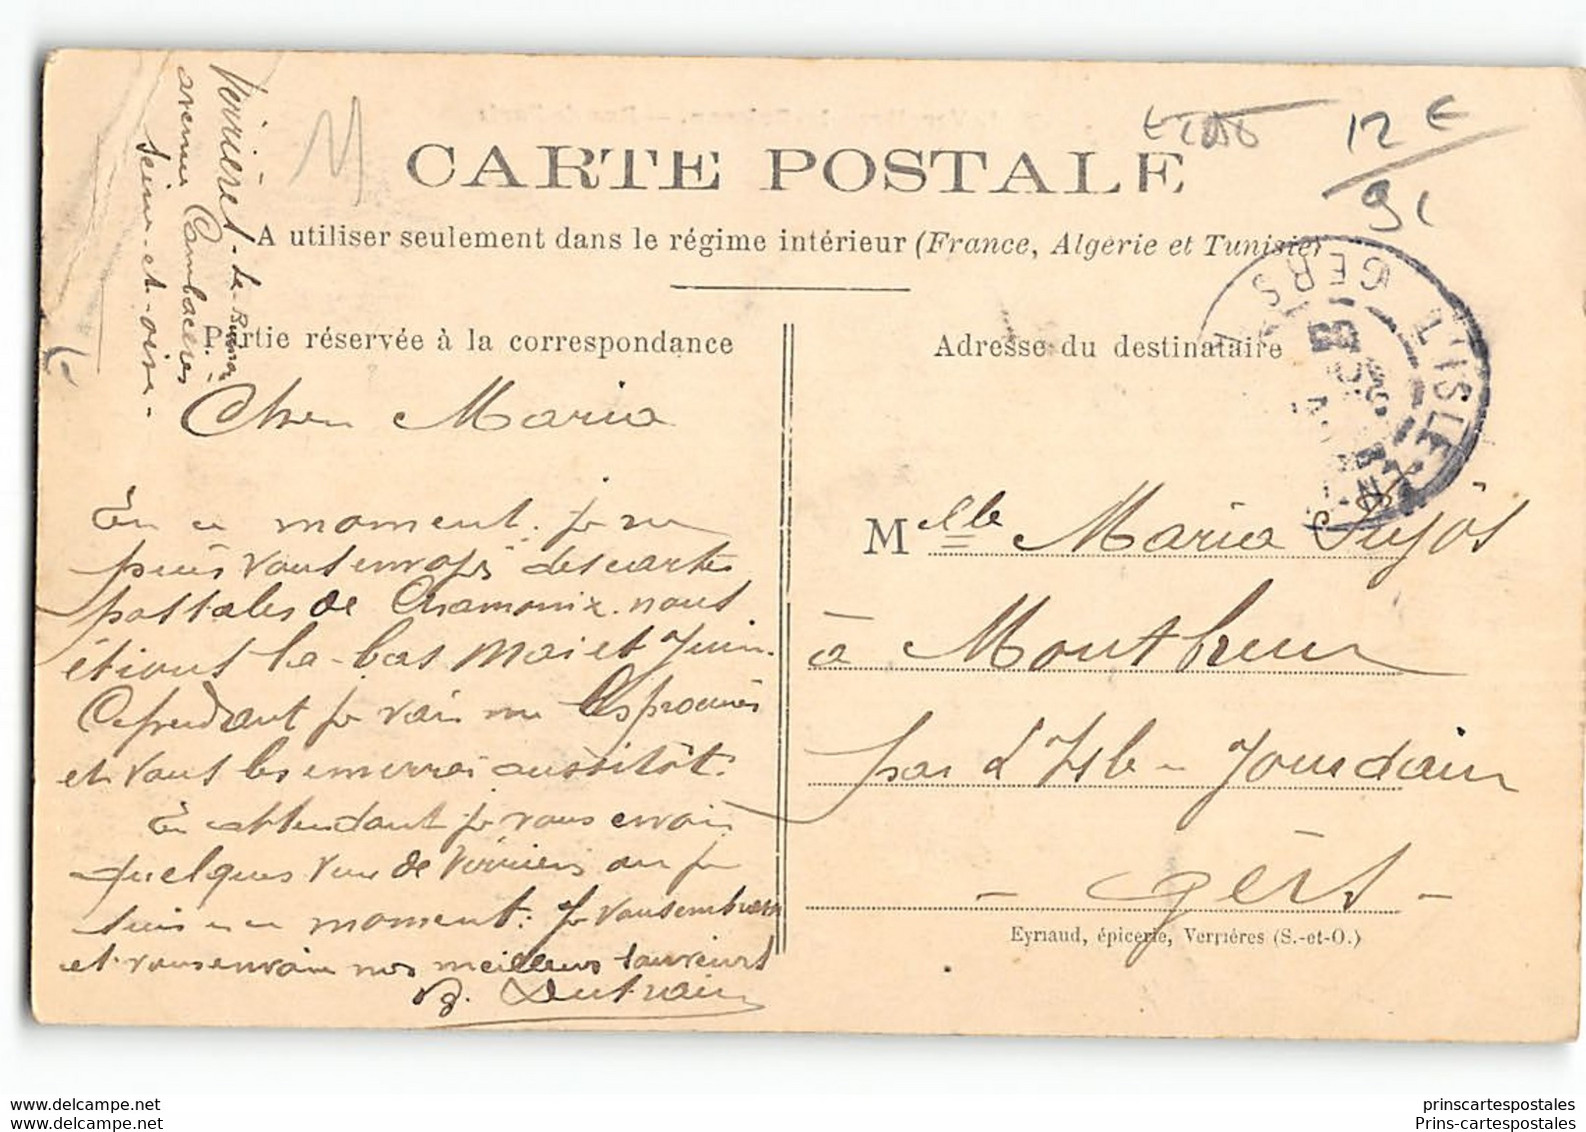 CARTE POSTALE
12 E
91
A utiliser seulement dans le régime intérieur (France, Algérie et Tunisie)
Verrières-le-Buisson
avenue Cambacérès
Seine-et-oise-
Partie réservée à la correspondance
Adresse du destinataire
L'ISLE-EN-
GERS
Cher Maria
En ce moment je ne
puis vous envoyer des cartes
postales de Chamonix. nous
étions la-bas Mai et Juin.
Cependant je vais me les procurer
et vous les enverrai aussitôt.
En attendant je vous envoie
quelques vue de Verrières ou je
suis en ce moment. Je vous embrasse
et vous envoie nos meilleurs
B. Dutrain
Melle Maria Pujos
à Montbrun
par l'Isle-Jourdain
- Gers -
Eyriaud, épicerie, Verrières (S.-et-O.)
www.delcampe.net
www.delcampe.net
prinscartespostales
Prins-cartespostales